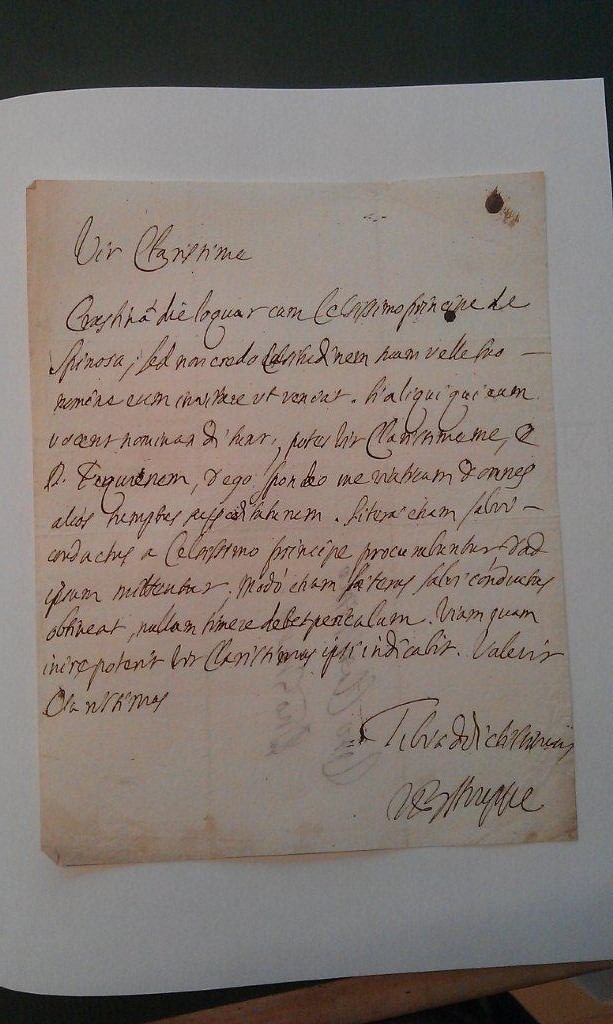 Vir Clarissime
Crastinâ die loquar cum Celsissimo principe de
Spinosa, sed non credo Celsitudinem suam velle suo
nomine eum invitare ut veniat. si aliqui qui eum
vocent nominandi sunt, potes Vir Clarissime me, &
D. , & ego spondeo me viaticum & omnes
alios sumptus suppeditaturum. literae etiam salvi
conductus a Celsissimo principe procurabuntur & ad
ipsum mittentur. Modó etiam literas salvi conductus
obtineat, nullum timere debet periculum. Viam quam
inire poterit Vir Clarissimus ipsi indicabit. Valeas Vir
Clarissime
Tibi addictissimus